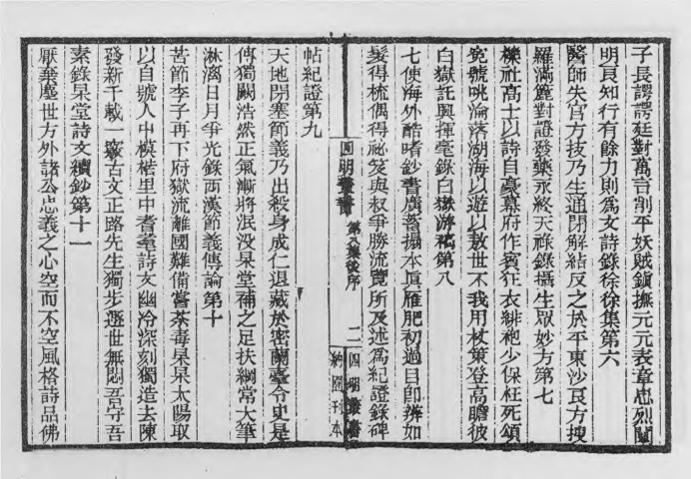 子長諤諤廷對萬言削平妖賊鎮撫元元表章忠烈闡
明良知行有餘力則為文詩錄徐徐集第六
醫師失官方技乃生通閉解結反之於平東沙良方搜
羅滿籠對證發藥永終天祿錄攝生眾妙方第七
櫟社高士以詩自豪幕府作賓狂衣緋袍少保枉死頌
冤號咷淪落湖海以遊以敖世不我用杖策登高瞻彼
白嶽託興揮毫錄白嶽游稿第八
七使海外酷嗜鈔書廣蓄搨本真雁肥初過目即辨如
髮得梳偶得祕笈與叙爭勝流覽所及述為紀證錄碑
四明叢書 第八集後序 二
四明叢書
約園刊本
帖紀證第九
天地閉塞節義乃出殺身成仁退藏於密蘭臺令史是
傳獨闕浩然正氣漸將泯沒杲堂補之足扶綱常大筆
淋漓日月爭光錄西漢節義傳論第十
苦節李子再下府獄流離國難備嘗荼毒杲杲太陽取
以自號人中模楷里中耆耋詩文幽冷深刻獨造去陳
發新千載一竅古文正路先生獨步遯世無悶吾守吾
素錄杲堂詩文續鈔第十一
厭棄塵世方外諸公忠義之心空而不空風格詩品佛